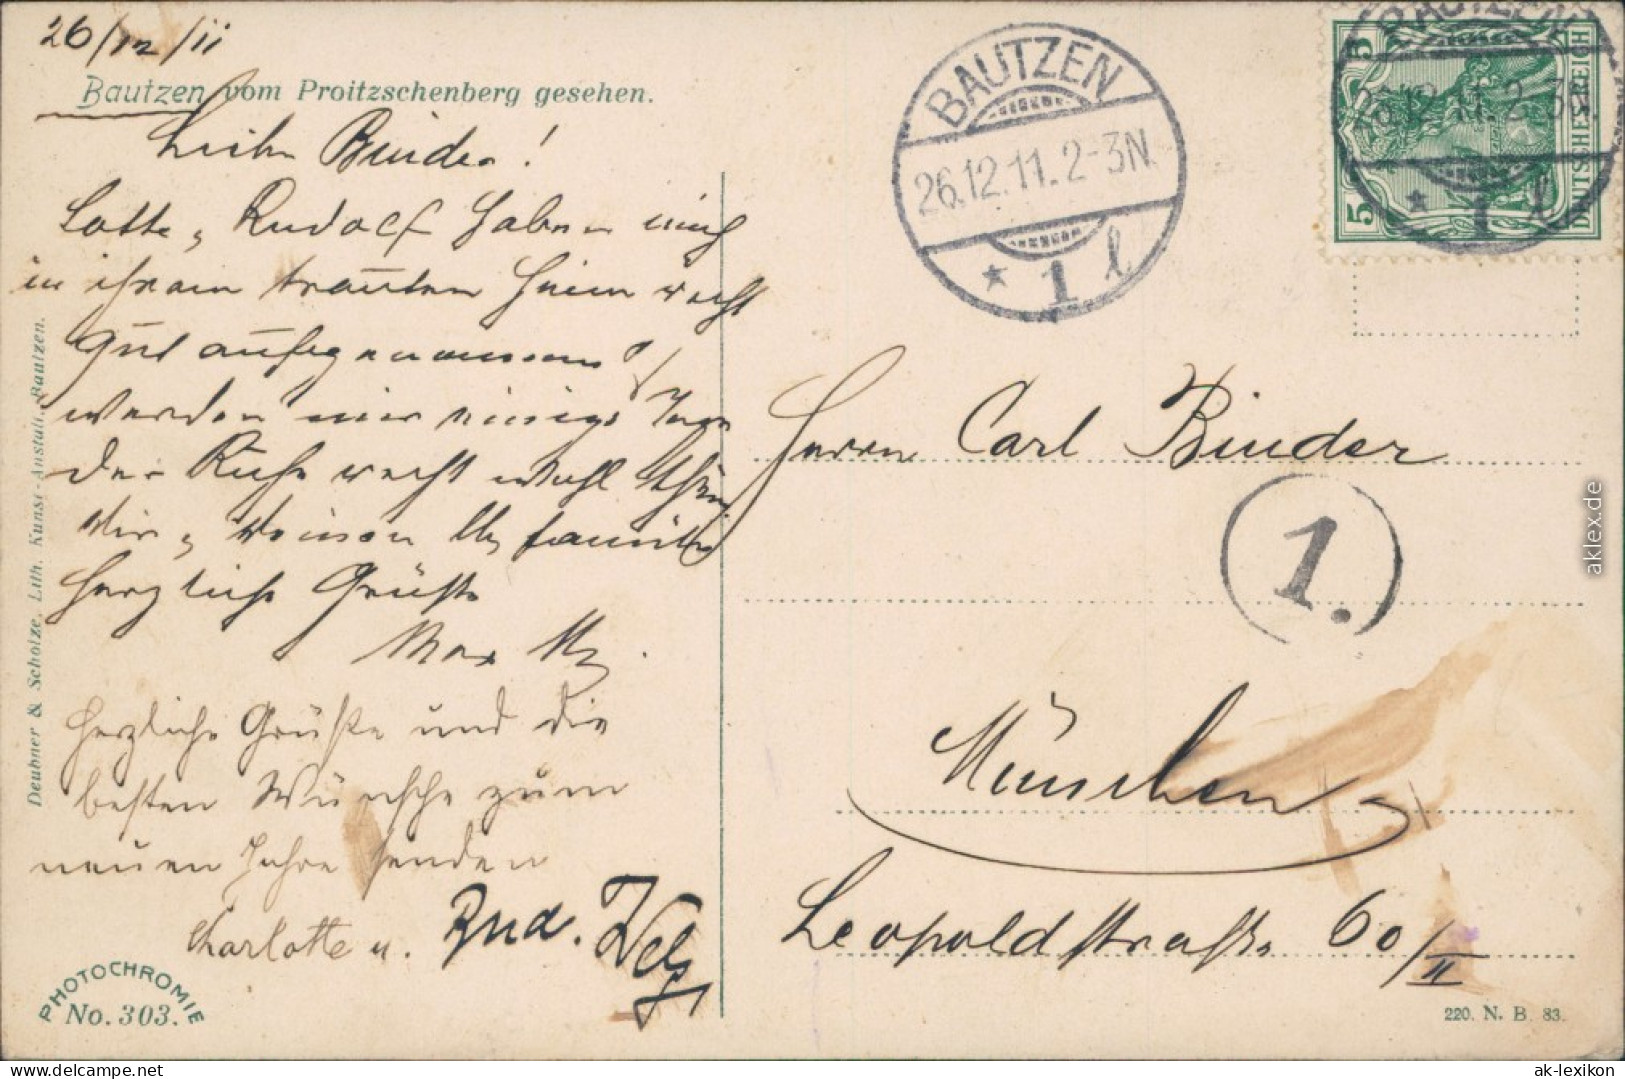 26/12/11
Bautzen vom Proitzschenberg gesehen.
Lieber Binder!
Lotte, Rudolf haben mich
in ihrem trauten Heim recht
gut aufgenommen!
werden mir einige Tage
der Ruhe recht wohl thun
Dir, Deinen l. Familie
herzliche Grüße
Max
Herzliche Grüße und die
besten Wünsche zum
neuen Jahre senden
Charlotte u. Rud.
PHOTOCHROMIE
No. 303.
Deubner & Scholze. Lith. Kunst-Anstalt, Bautzen.
BAUTZEN
26.12.11.2-3N.
* 1 l
BAUTZEN
26.12.11.2-3N.
* 1 l
5 5
DEUTSCHES REICH
Herrn Carl Binder
1.
München
Leopoldstraße 60/II
220. N. B. 83.
aklex.de
www.ak-ansichtskarten.de
ak-lexikon